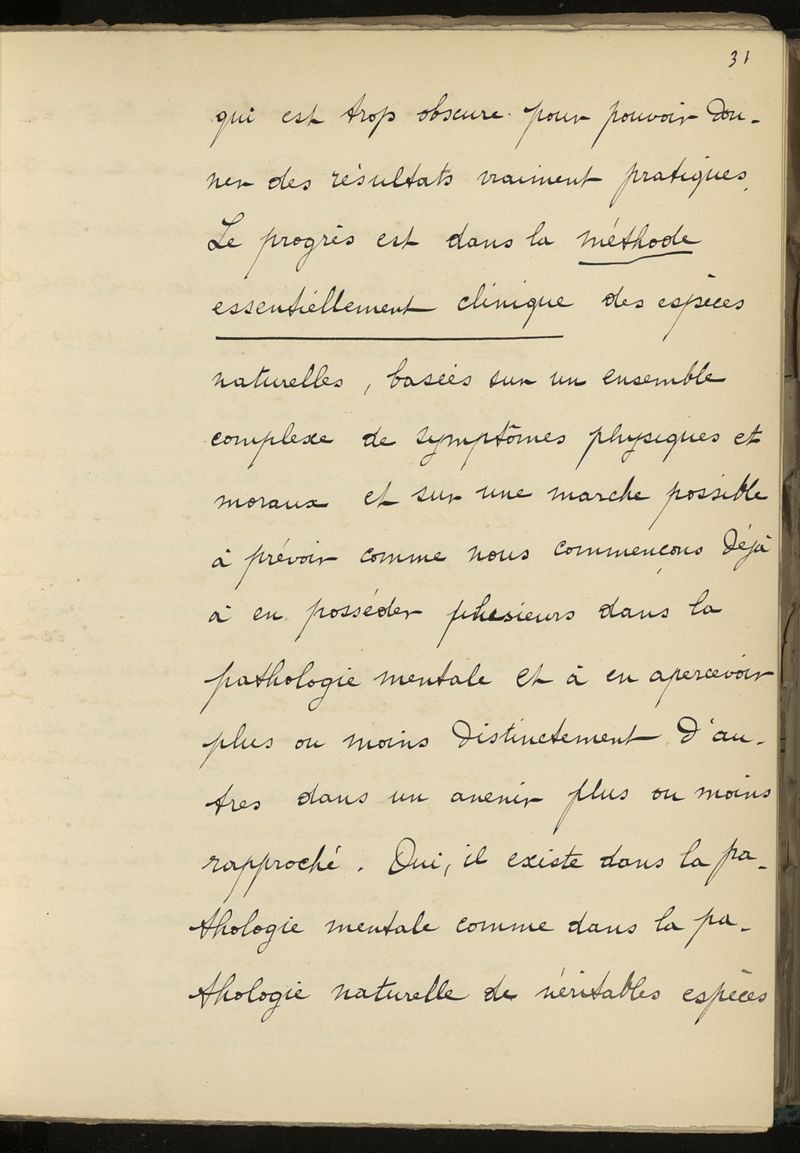 31
qui est trop obscure pour pouvoir don-
ner des résultats vraiment pratiques.
Le progrès est dans la méthode
essentiellement clinique des espèces
naturelles, basées sur un ensemble
complexe de symptômes physiques et
moraux et sur une marche possible
à prévoir comme nous commençons déjà
à en posséder plusieurs dans la
pathologie mentale et à en apercevoir
plus ou moins distinctement d'au-
tres dans un avenir plus ou moins
rapproché. Oui, il existe dans la pa-
thologie mentale comme dans la pa-
thologie naturelle de véritables espèces